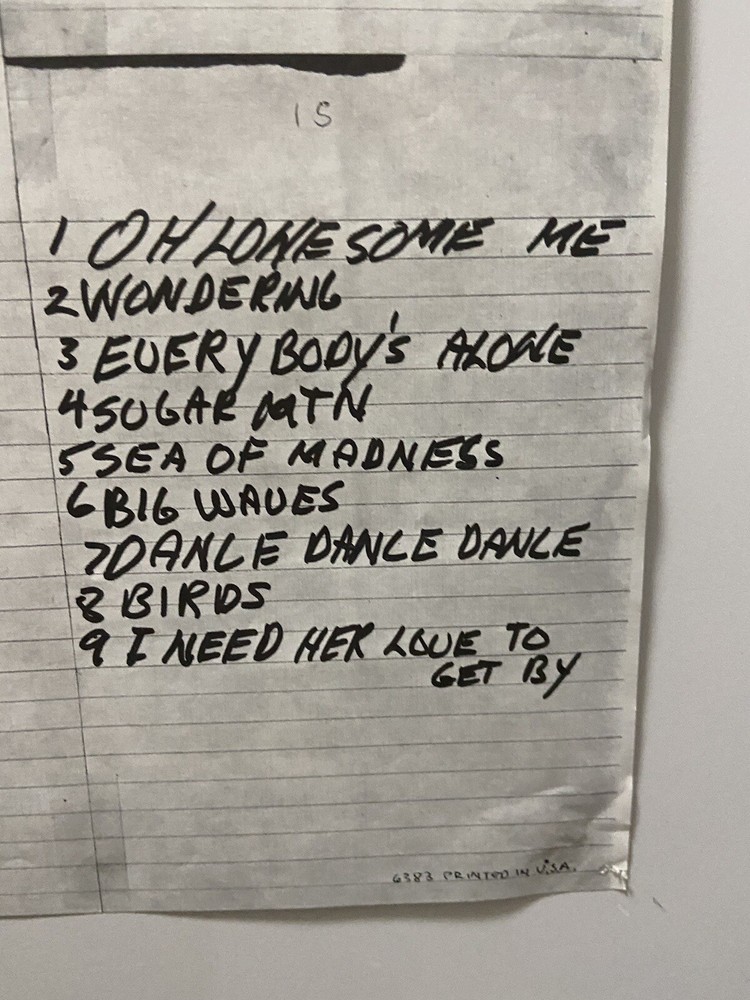 15
1 OH LONESOME ME
2 WONDERING
3 EVERYBODY'S ALONE
4 SUGAR MTN
5 SEA OF MADNESS
6 BIG WAVES
7 DANCE DANCE DANCE
8 BIRDS
9 I NEED HER LOVE TO
GET BY
6383 PRINTED IN U.S.A.